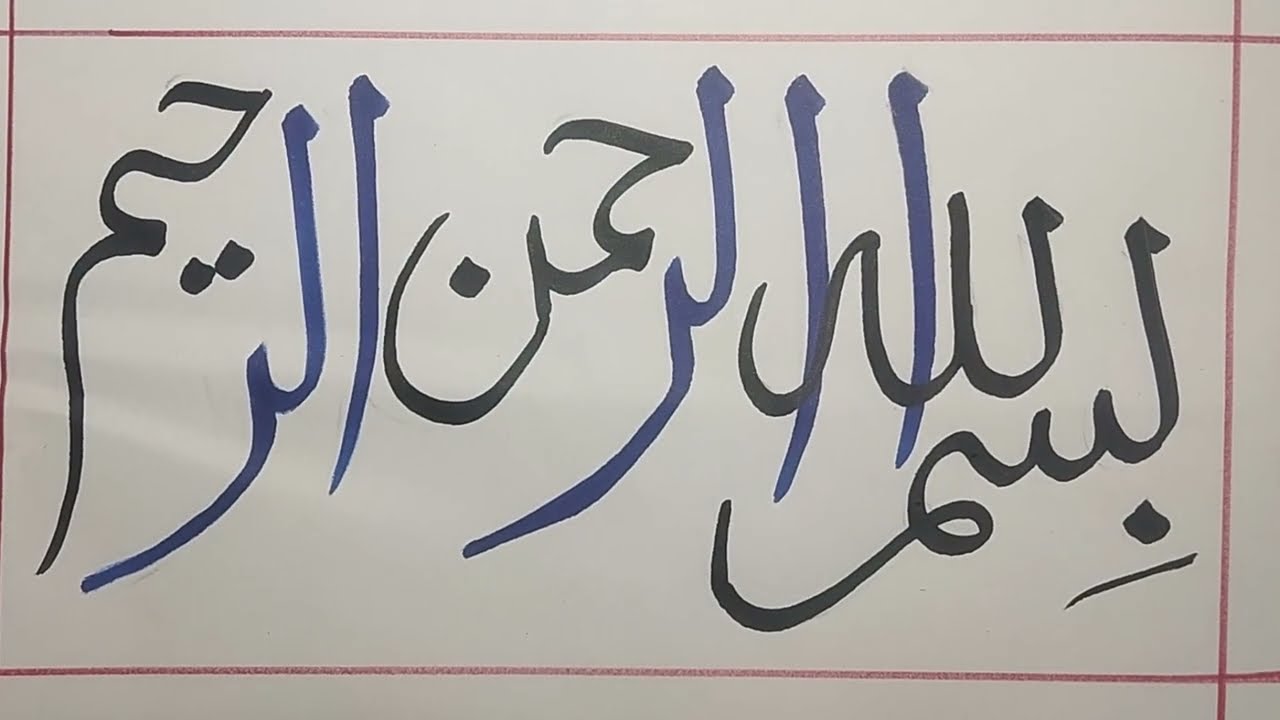 بِسم الله الرحمن الرحيم